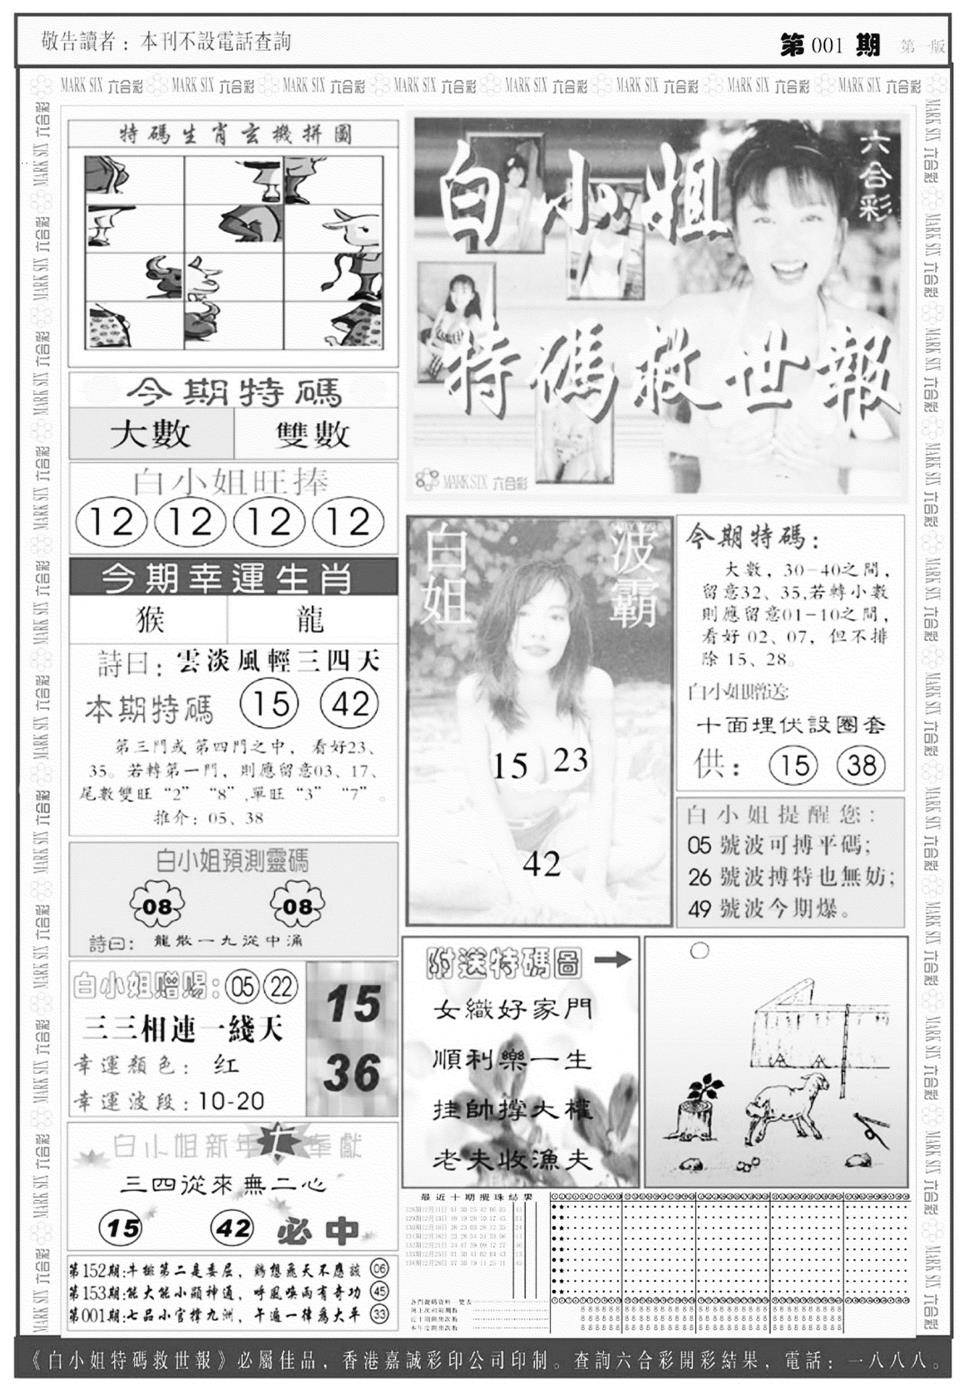 敬告讀者：本刊不設電話查詢
第001期 第一版
MARK SIX 六合彩 MARK SIX 六合彩 MARK SIX 六合彩 MARK SIX 六合彩 MARK SIX 六合彩 MARK SIX 六合彩 MARK SIX 六合彩 MARK SIX 六合彩
特碼生肖玄機拼圖
六合彩
白小姐
特碼救世報
MARK SIX 六合彩
今期特碼
大數 雙數
白小姐旺捧
12 12 12 12
今期幸運生肖
猴 龍
詩曰：雲淡風輕三四天
本期特碼 15 42
第三門或第四門之中，看好23、
35。若轉第一門，則應留意03、17、
尾數雙旺“2”“8”,單旺“3”“7”。
推介：05、38
白小姐預測靈碼
08 08
詩曰：龍散一九從中涌
白小姐赠赐：05 22
三三相連一綫天
幸運顏色：红
幸運波段：10-20
15
36
白小姐新年七奉獻
三四從來無二心
15 42 必中
第152期:牛排第二是委屈，鷄想飛天不應該 06
第153期:能大能小顯神通，呼風喚雨有奇功 45
第001期:七品小官擇九洲，午遍一律爲大平 33
白姐
波霸
15 23
42
今期特碼：
大數，30-40之間，
留意32、35,若轉小數
則應留意01-10之間，
看好 02、07，但不排
除 15、28。
白小姐赠送:
十面埋伏設圈套
供：15 38
白小姐提醒您：
05 號波可搏平碼；
26 號波搏特也無妨；
49 號波今期爆。
附送特碼圖
女織好家門
順利樂一生
挂帥撐大權
老夫收漁夫
最近十期攪珠結果
《白小姐特碼救世報》必屬佳品，香港嘉誠彩印公司印制。查詢六合彩開彩結果，電話：一八八八。